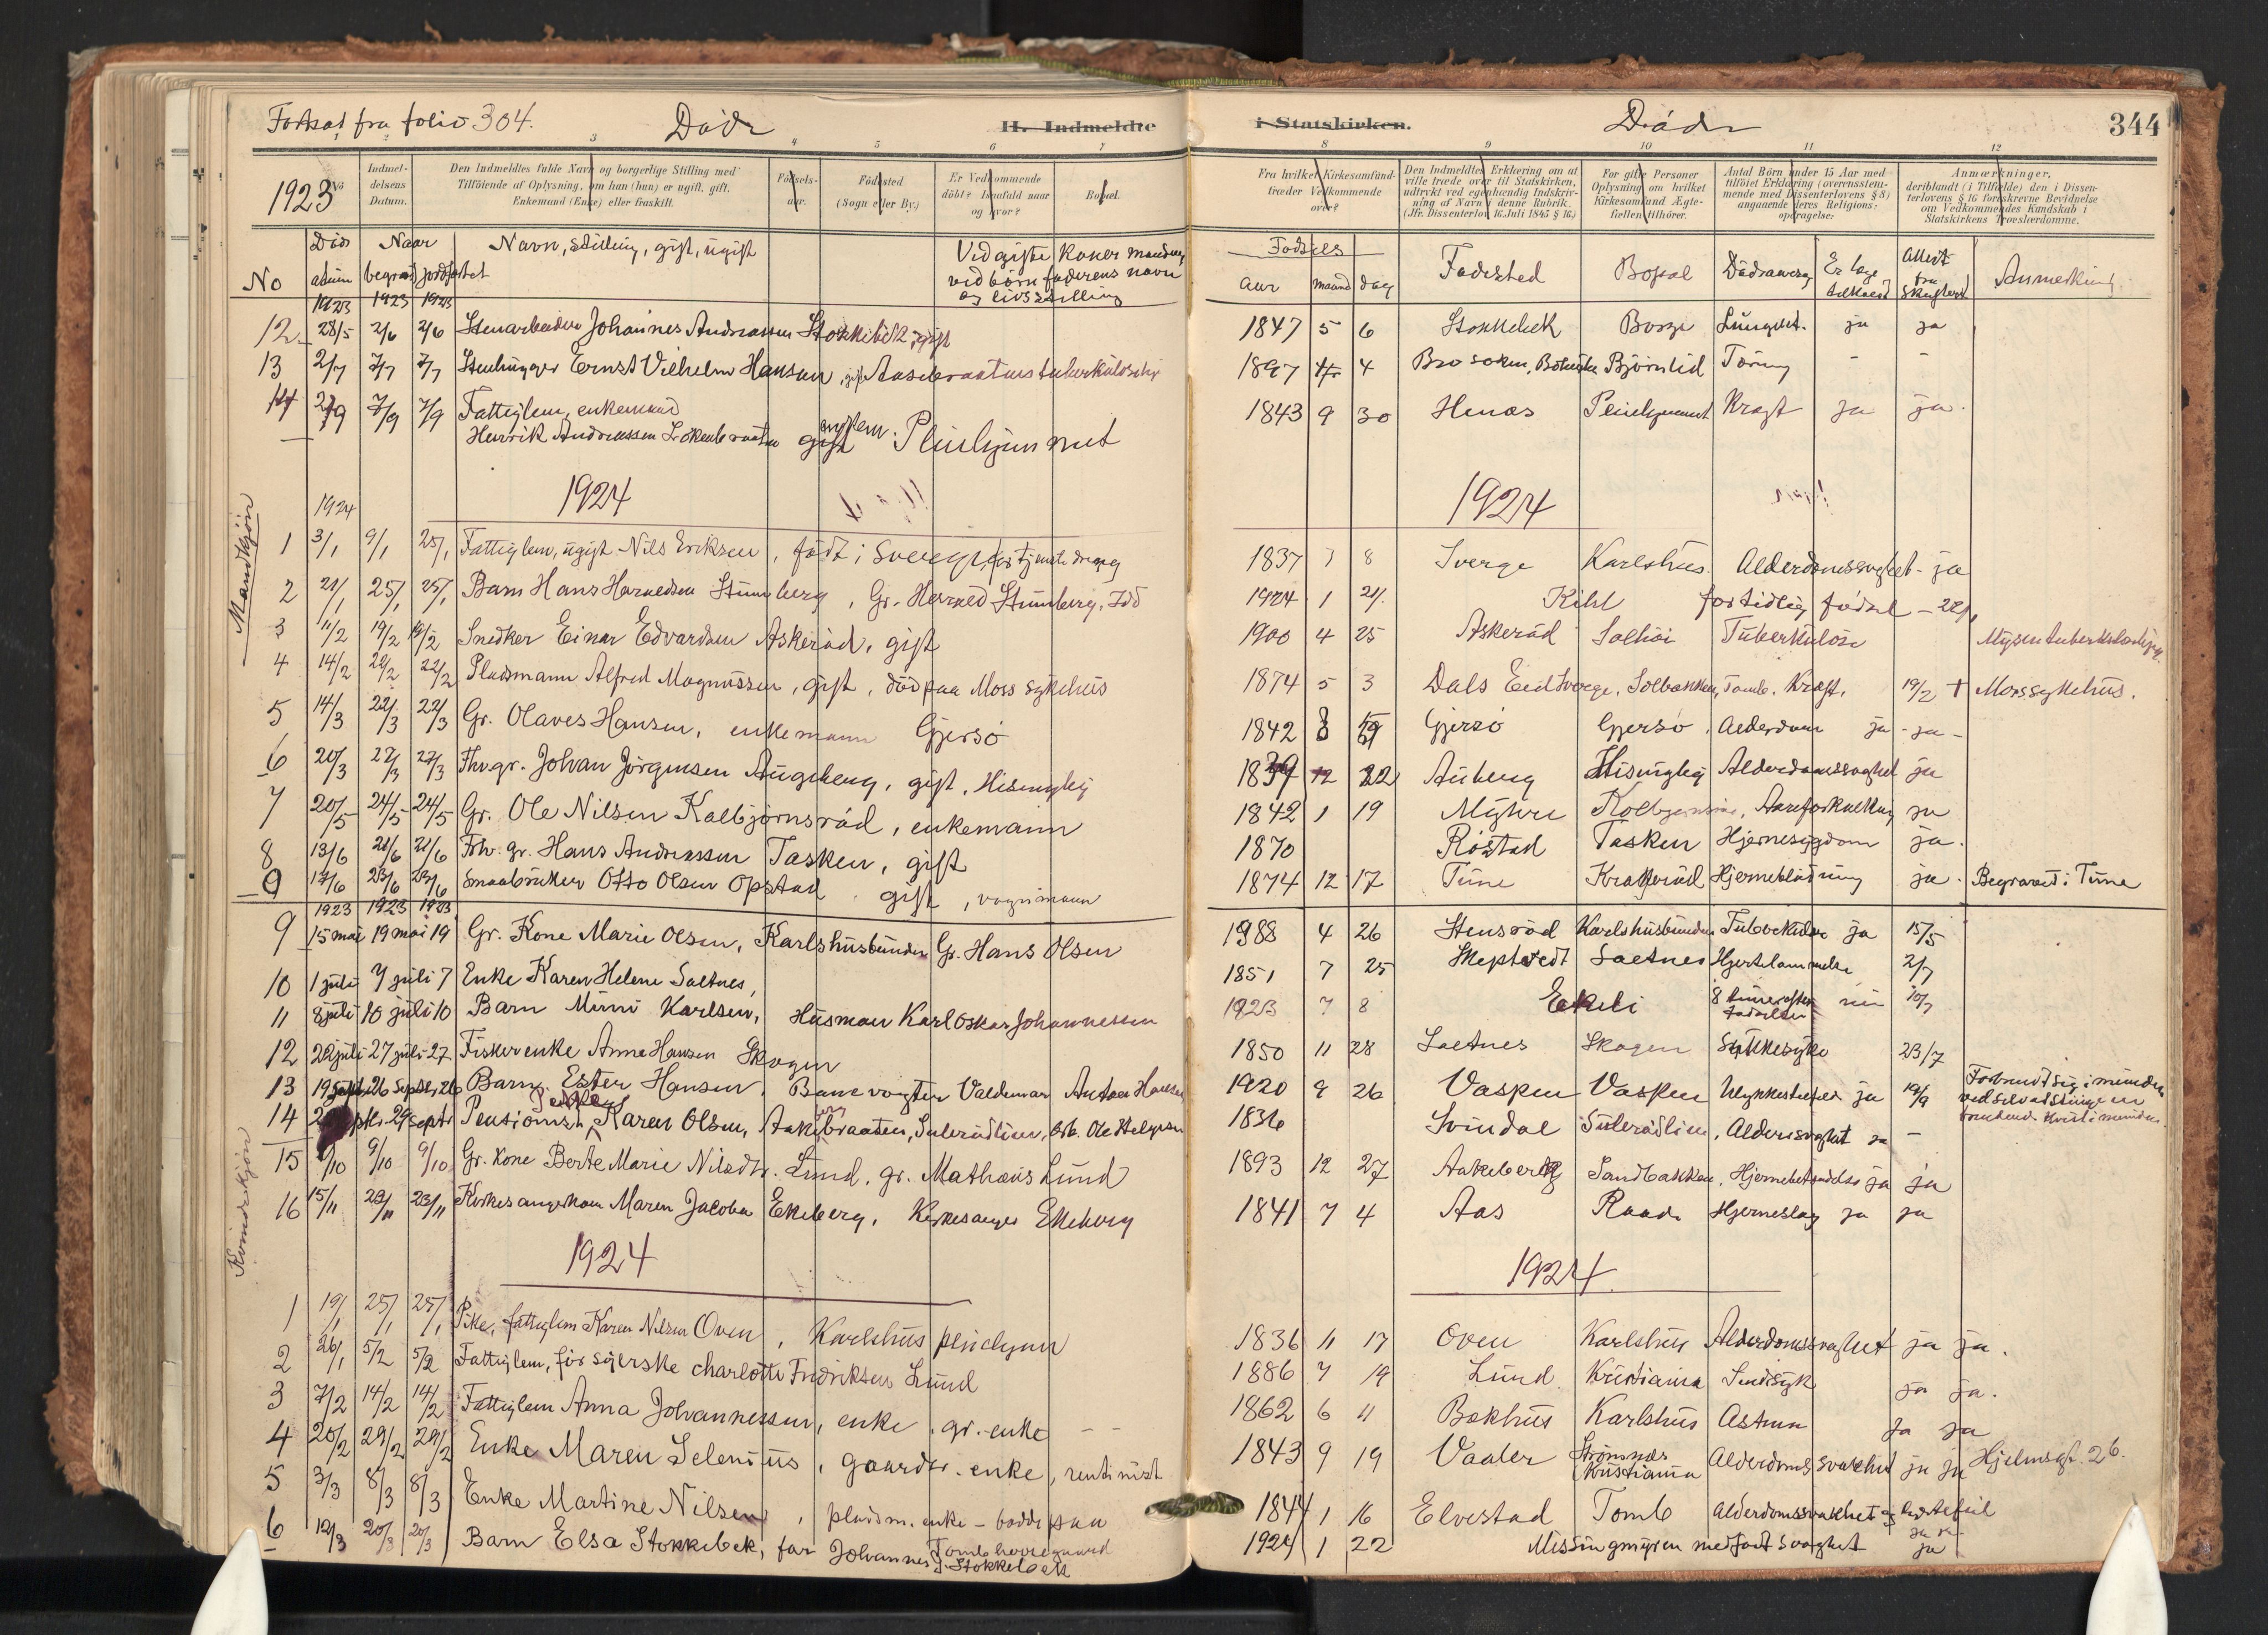 Fortsat fra folio 304.
Döde
II. Indmeldte
i Statskirken.
Döde
344
3 4 5 6 7 8 9 10 11 12
1923
No
Indmeldelsens Datum.
Den Indmeldtes fulde Navn og borgerlige Stilling med Tilföiende af Oplysning, om han (hun) er ugift, gift, Enkemand (Enke) eller fraskilt.
Födselsaar.
Födested (Sogn eller By.)
Er Vedkommende döbt? Isaafald naar og hvor?
Bopæl.
Fra hvilket Kirkesamfund træder Vedkommende over?
Den Indmeldtes Erklæring om at ville træde over til Statskirken, udtrykt ved egenhændig Indskrivning af Navn i denne Rubrik. (Jfr. Dissenterlov 16. Juli 1845 § 16.)
For gifte Personer Oplysning om hvilket Kirkesamfund Ægtefællen tilhörer.
Antal Börn under 15 Aar med tilföiet Erklæring (overensstemmende med Dissenterlovens § 8) angaaende deres Religionsopdragelse.
Anmærkninger, deriblandt (i Tilfælde) den i Dissenterlovens § 16 foreskrevne Bevidnelse om Vedkommendes Kundskab i Statskirkens Troeslærdomme.
No Döds datum Naar begravet jordfæstet Navn, stilling, gift, ugift Ved gifte koner mandens ved börn faderens navn og livsstilling
Födsels aar maaned dag Födested Bopæl Dödsaarsag Er læge tilkaldt Attest fra skifteret Anmerkning
1923 1923 1923
12 28/5 2/6 2/6 Stenarbeider Johannes Andreassen Stokkebek, gift 1847 5 6 Stokkebek Borge Lungebet. ja ja
13 2/7 7/7 7/7 Stenhugger Ernst Vilhelm Hansen, gift Aasebraatens tuberkulosehj 1897 4 Bro soken, Bohuslen Björnlid Tæring - -
14 2/9 7/9 7/9 Fattiglem, enkemand Henrik Andreassen gift Pleiehjemmet 1843 9 30 Henæs Pleiehjemmet Kræft ja ja.
Mandkjön
1924
1924
1924
1 3/1 9/1 25/1 Fattiglem, ugift Nils Eriksen, födt i Sverige, 1837 7 8 Sverge Karlshus. Alderdomssvaghet - ja
2 21/1 25/1 25/1 Barn Hans Haraldsen Stumberg, Gr. Harald Stumberg, 1924 1 21. Kihl for tidlig födsel - 22/1
3 11/2 19/2 19/2 Snedker Einar Edvardsen Askeröd, gift 1900 4 25 Askeröd Solhöi Tuberkulose Mysen tuberkulosehj.
4 14/2 22/2 22/2 Pladsmann Alfred Magnussen, gift, död paa Moss sykehus 1874 5 3 Dals Eid Sverge, Solbakken, Tomb. Kræft. 19/2 + Moss sykehus.
5 14/3 22/3 22/3 Gr. Olaves Hansen, enkemann Gjersö 1842 8 19 Gjersö Gjersö, Alderdom ja - ja -
6 20/3 27/3 27/3 Fhv. gr. Johan Jörgensen Augeberg, gift, Hisingby 1839 12 22 Auberg Hisingby Alderdomssvaghet ja
7 20/5 24/5 24/5 Gr. Ole Nilsen Kolbjörnsröd, enkemann 1842 1 19 Myhre Aareforkalkning ja
8 13/6 21/6 21/6 Fhv. gr. Hans Andreassen Tasken, gift 1870 Röstad Tasken Hjernesygdom ja.
9 17/6 23/6 23/6 Smaabruker Otto Olsen Opstad, gift, vognmann 1874 12 17 Tune Krakeröd Hjerneblödning ja. Begravet i Tune
1923 1923 1923
9 15 mai 19 mai 19 Gr. Kone Marie Olsen, Karlshusbunden Gr. Hans Olsen 1988 4 26 Stensröd Karlshusbunden Tuberkulose ja 15/5
10 1 juli 7 juli 7 Enke Karen Helene Saltnes, 1851 7 25 Skeptvedt Saltnes Hjertelammelse 2/7
11 8 juli 10 juli 10 Barn Minni Karlsen, Husman Karl Oskar Johannessen 1923 7 8 Ekeli 8 timer efter födselen nei 10/7
12 22 juli 27 juli 27 Fiskerenke Anna Hansen Skogen 1850 11 28 Saltnes Skogen Sukkesyke 23/7
13 19 sept. 26 septr, 26 Barn Ester Hansen, Banevogter Valdemar Anton Hansen 1920 9 26 Vaspen Vaspen Ulykkestilfelde ja 19/9
14 septr. 29 septr Pensionist Karen Olsen, Aakebraaten, Suleródlien, arb. Ole Helgesen 1836 Svindal Sulerödlien, Alderssvaghet ja -
Kvindekjön
15 /10 9/10 9/10 Gr. Kone Berte Marie Nilsdtr. Lund, gr. Mathæus Lund 1893 12 27 Aakeberg Sandbakken, Hjernebetændelse ja ja
16 15/11 23/11 23/11 Kirkesangerkone Maren Jacoba Ekeberg, Kirkesanger Ekeberg 1841 7 4 Aas Raade Hjerneslag ja ja
1924
1924
1 19/1 25/1 25/1 Pike, fattiglem Karen Nilsen Oven, Karlshus pleiehjem 1836 11 17 Oven Karlshus Alderdomssvaghet ja ja.
2 26/1 5/2 5/2 Fattiglem, för syerske Charlotte Fredriksen Lund 1886 7 19 Lund Kristiania Sindssyk ja ja.
3 7/2 14/2 14/2 Fattiglem Anna Johannessen, enke, gr. enke - - 1862 6 11 Bokhus Karlshus Astma ja ja
4 20/2 29/2 29/2 Enke Maren Selenius, gaardbr. enke, rentinist 1843 9 19 Vaaler Strömnæs Kristiania Alderdomssvakhet ja ja Hjelmsgt. 26.
5 3/3 8/3 8/3 Enke Martine Nilsen, pladsm. enke - bodde paa Tomb hovedgaard 1844 1 16 Elvestad Tomb Alderdomssvakhet og hjertefeil ja
6 12/3 20/3 20/3 Barn Elsa Stokkebek, far Johannes J. Stokkebek 1924 1 22 Missingmyren medfödt svaghet ja